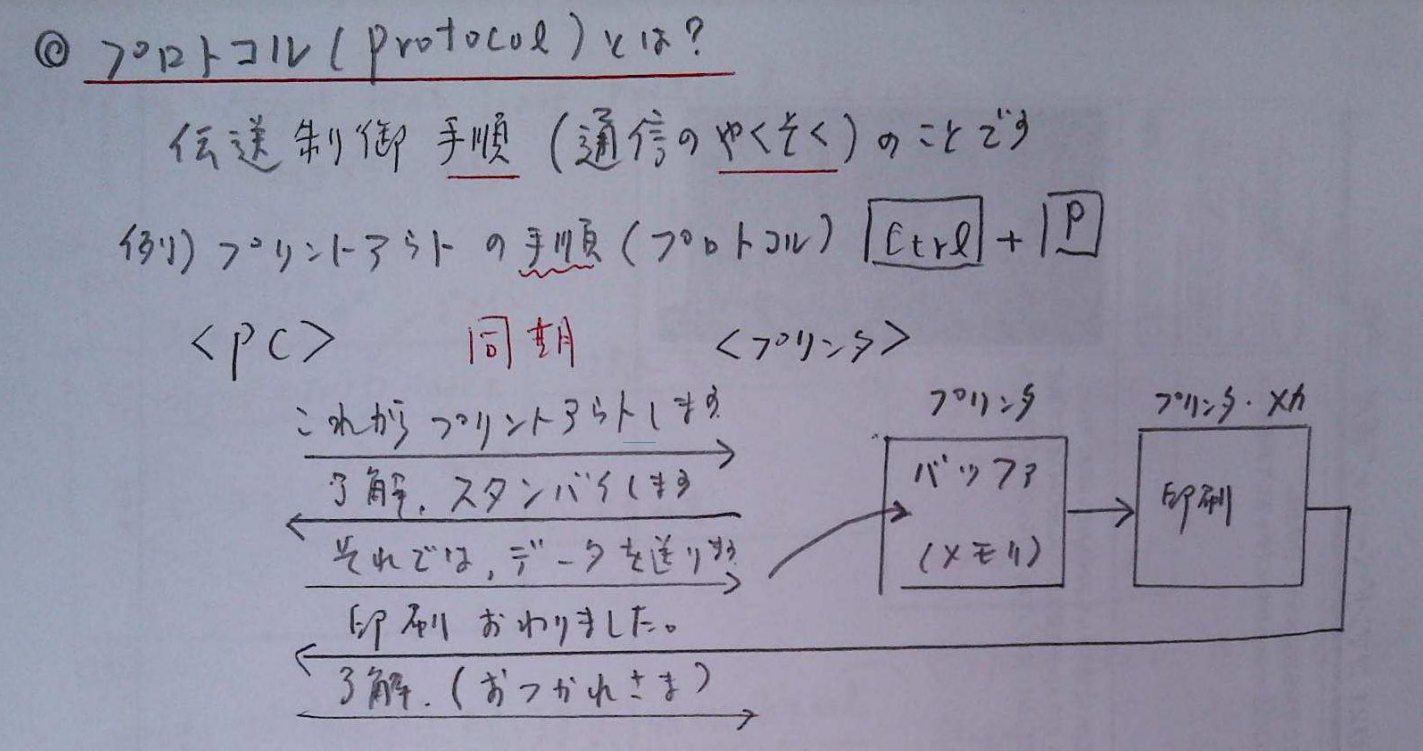 ◎ プロトコル(protocol)とは?
伝送制御手順(通信のやくそく)のことです
例)プリントアウトの手順(プロトコル) Ctrl + P
<PC> 同期 <プリンタ>
これからプリントアウトします
了解.スタンバイします
それでは,データを送ります
印刷おわりました。
了解.(おつかれさま)
プリンタ
バッファ
(メモリ)
プリンタ・メカ
印刷